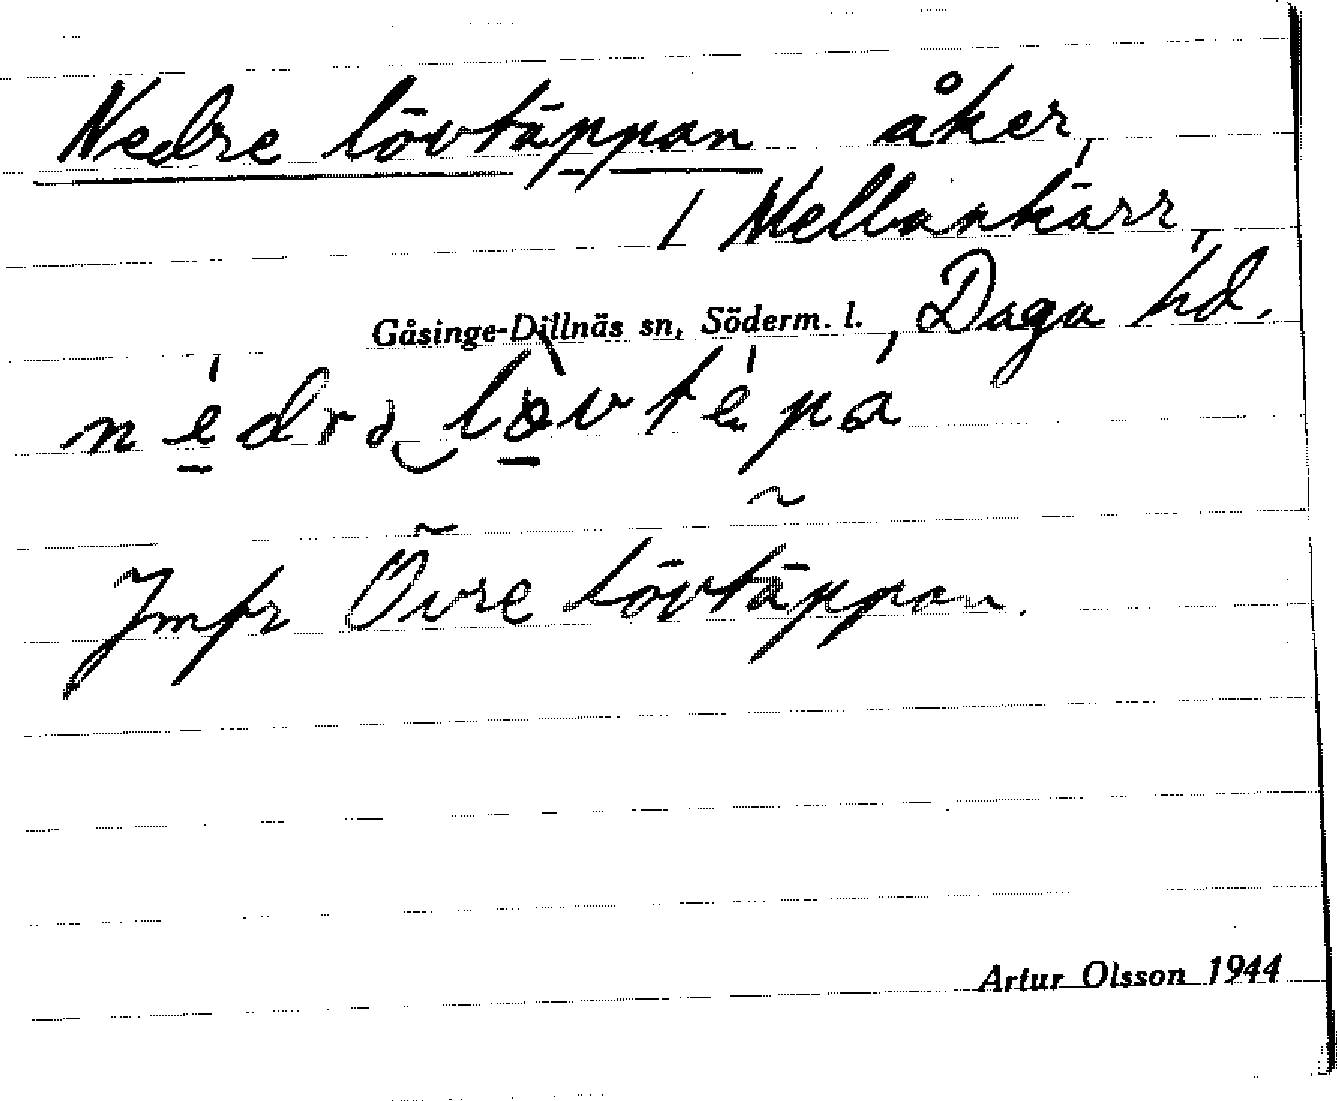 Nedre lövtäppan åker,
/ Mellankärr,
Gåsinge-Dillnäs sn, Söderm. l., Daga hd.
Jmfr Övre Lövtäppan.
Artur Olsson 1944